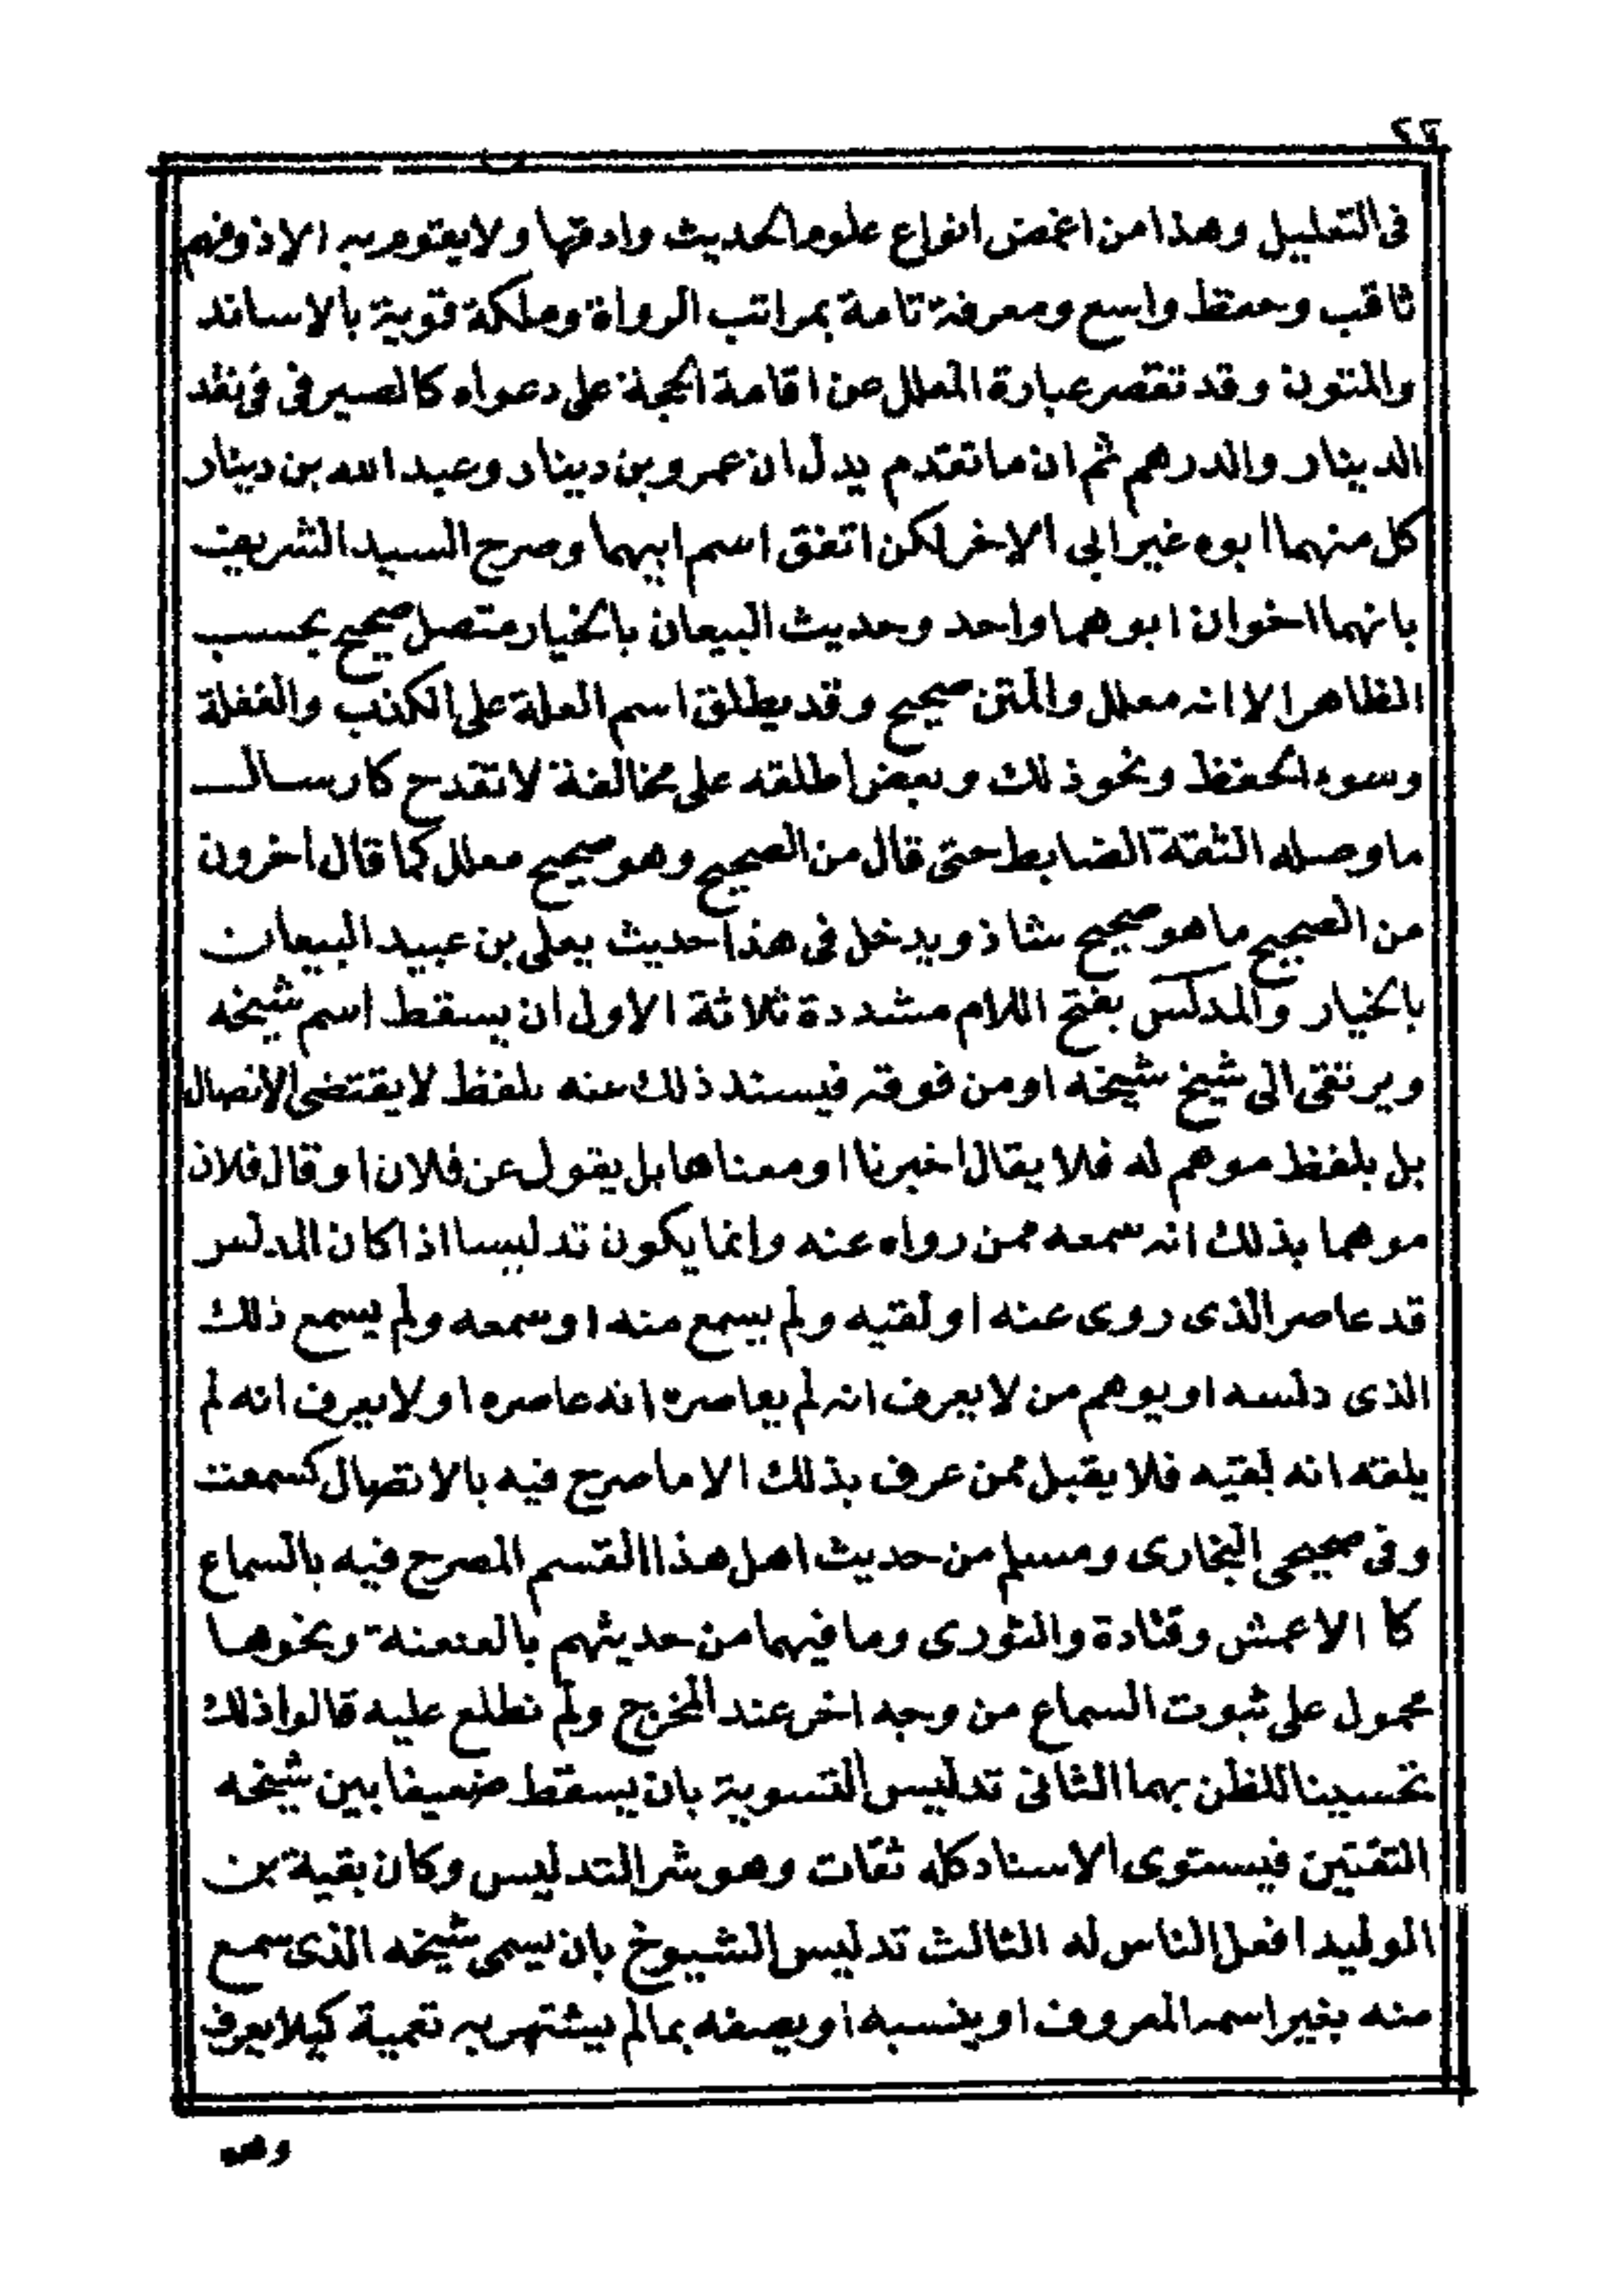 ٢٦
فى التعليل وهذا من اغمض انواع علوم الحديث وادقها ولا يقوم به الا ذو فهم
ثاقب وحفظ واسع ومعرفة تامة بمراتب الرواة وملكة قوية بالاساند
والمتون وقد تقصر عبارة المعلل عن اقامة الحجة على دعواه كالصيرفى فى نقد
الدينار والدرهم ثم ان ما تقدم يدل ان عمرو بن دينار وعبد الله بن دينار
كل منهما ابوه غير ابى الاخر لكن اتفق اسم ابيهما وصرح السيد الشريف
بانهما اخوان ابوهما واحد وحديث البيعان بالخيار متصل صحيح بحسب
الظاهر الا انه معلل والمتن صحيح وقد يطلق اسم العلة على الكذب والغفلة
وسوء الحفظ ونحو ذلك وبعض اطلقه على مخالفة لا تقدح كارسال
ما وصله الثقة الضابط حتى قال من الصحيح وهو صحيح معلل كما قال اخرون
من الصحيح ما هو صحيح شاذ ويدخل فى هذا حديث يعلى بن عبيد البيعان
بالخيار والمدلس بفتح اللام مشددة ثلاثة الاول ان يسقط اسم شيخه
ويرتقى الى شيخ شيخه او من فوقه فيسند ذلك عنه بلفظ لا يقتضى الاتصال
بل بلفظ موهم له فلا يقال اخبرنا او معناها بل يقول عن فلان او قال فلان
موهما بذلك انه سمعه ممن رواه عنه وانما يكون تدليسا اذا كان المدلس
قد عاصر الذى روى عنه او لقيه ولم يسمع منه او سمعه ولم يسمع ذلك
الذى دلسه او يوهم من لا يعرف انه لم يعاصره انه عاصره او لا يعرف انه لم
يلقه انه لقيه فلا يقبل ممن عرف بذلك الا ما صرح فيه بالاتصال كسمعت
وفى صحيحى البخارى ومسلم من حديث اهل هذا القسم المصرح فيه بالسماع
كا الاعمش وقتادة والثورى وما فيهما من حديثهم بالعنعنة ونحوها
محمول على ثبوت السماع من وجه اخر عند المخرج ولم نطلع عليه قالوا ذلك
تحسينا للظن بهما الثانى تدليس التسوية بان يسقط ضعيفا بين شيخه
الثقتين فيستوى الاسناد كله ثقات وهو شر التدليس وكان بقية بن
الوليد افعل الناس له الثالث تدليس الشيوخ بان يسمى شيخه الذى سمع
منه بغير اسمه المعروف او ينسبه او يصفه بما لم يشتهر به تعمية كيلا يعرف